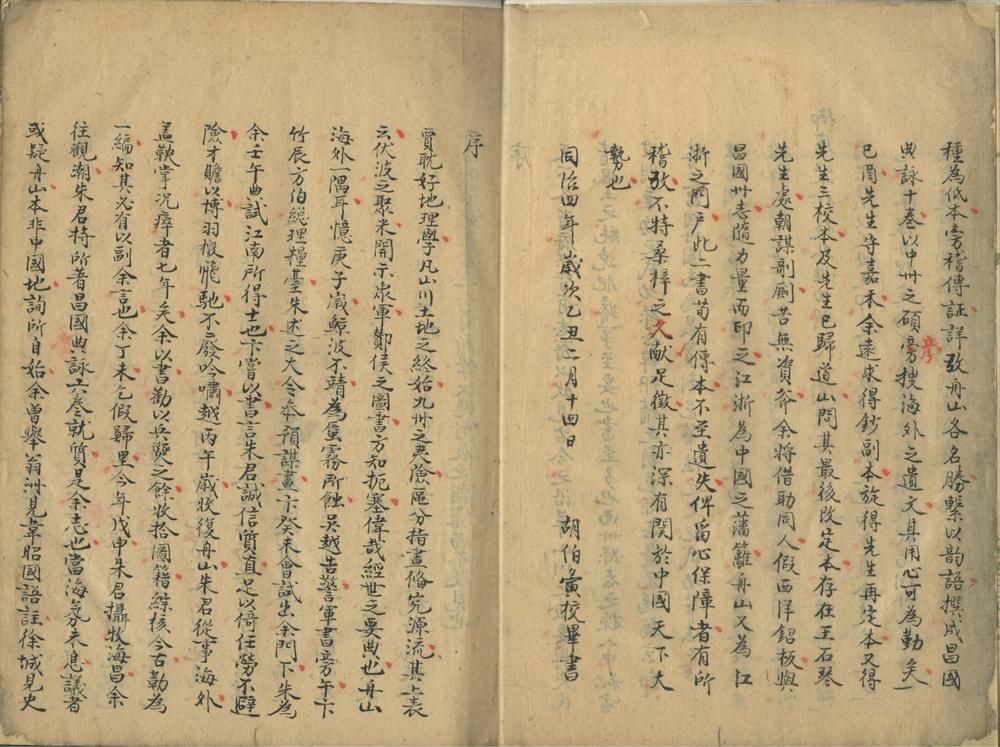 種為底本旁稽傳証詳攷舟山各名勝繫以韵語撰成昌國
典詠十巻以中州之碩彦旁搜海外之遺文其用心可為勤矣
己酉先生守嘉禾余遠求得鈔副本旋得先生再定本又得
先生三校本及先生已歸道山問其最後改定本存在王石琴
先生處朝謀剞劂苦無資斧余將借助同人假西洋鉛板與
昌國州志隨力量而印之江浙為中國之藩籬舟山又為江
浙之門户此二書苟有傳本不至遺失俾留心保障者有所
稽攷不特桑梓之文献足徵其亦深有関於中國天下大
勢也
同治四年歲次乙丑二月十四日 胡伯寅校畢書
序
賈耽好地理學凡山川土地之終始九州之夷險區分指畫俻究源流其上表
云伏波之聚米開示衆軍酇侯之圖書方知扼塞偉哉經世之要典也舟山
海外一隅耳憶庚子歲鯨波不靖為蜃霧所蝕吳越告警軍書旁午卞
竹辰方伯総理糧臺朱述之大令叅預謀畫卞癸未會試出余門下朱為
余壬午典試江南所得士也卞嘗以書言朱君誠信質直足以倚任勞不避
險才贍以博羽檄飛馳不廢吟嘯越丙午歲收復舟山朱君從事海外
盖鞅掌况瘁者七年矣余以書勸以兵燹之餘收拾圖籍綜核今古勒為
一編知其必有以副余言也余丁未乞假歸里今年戊申朱君攝牧海昌余
往觀潮朱君持所著昌國典詠六巻就質是余志也當海氛未息議者
或疑舟山本非中國地詢所自始余曾舉翁洲見韋昭國語註徐城見史